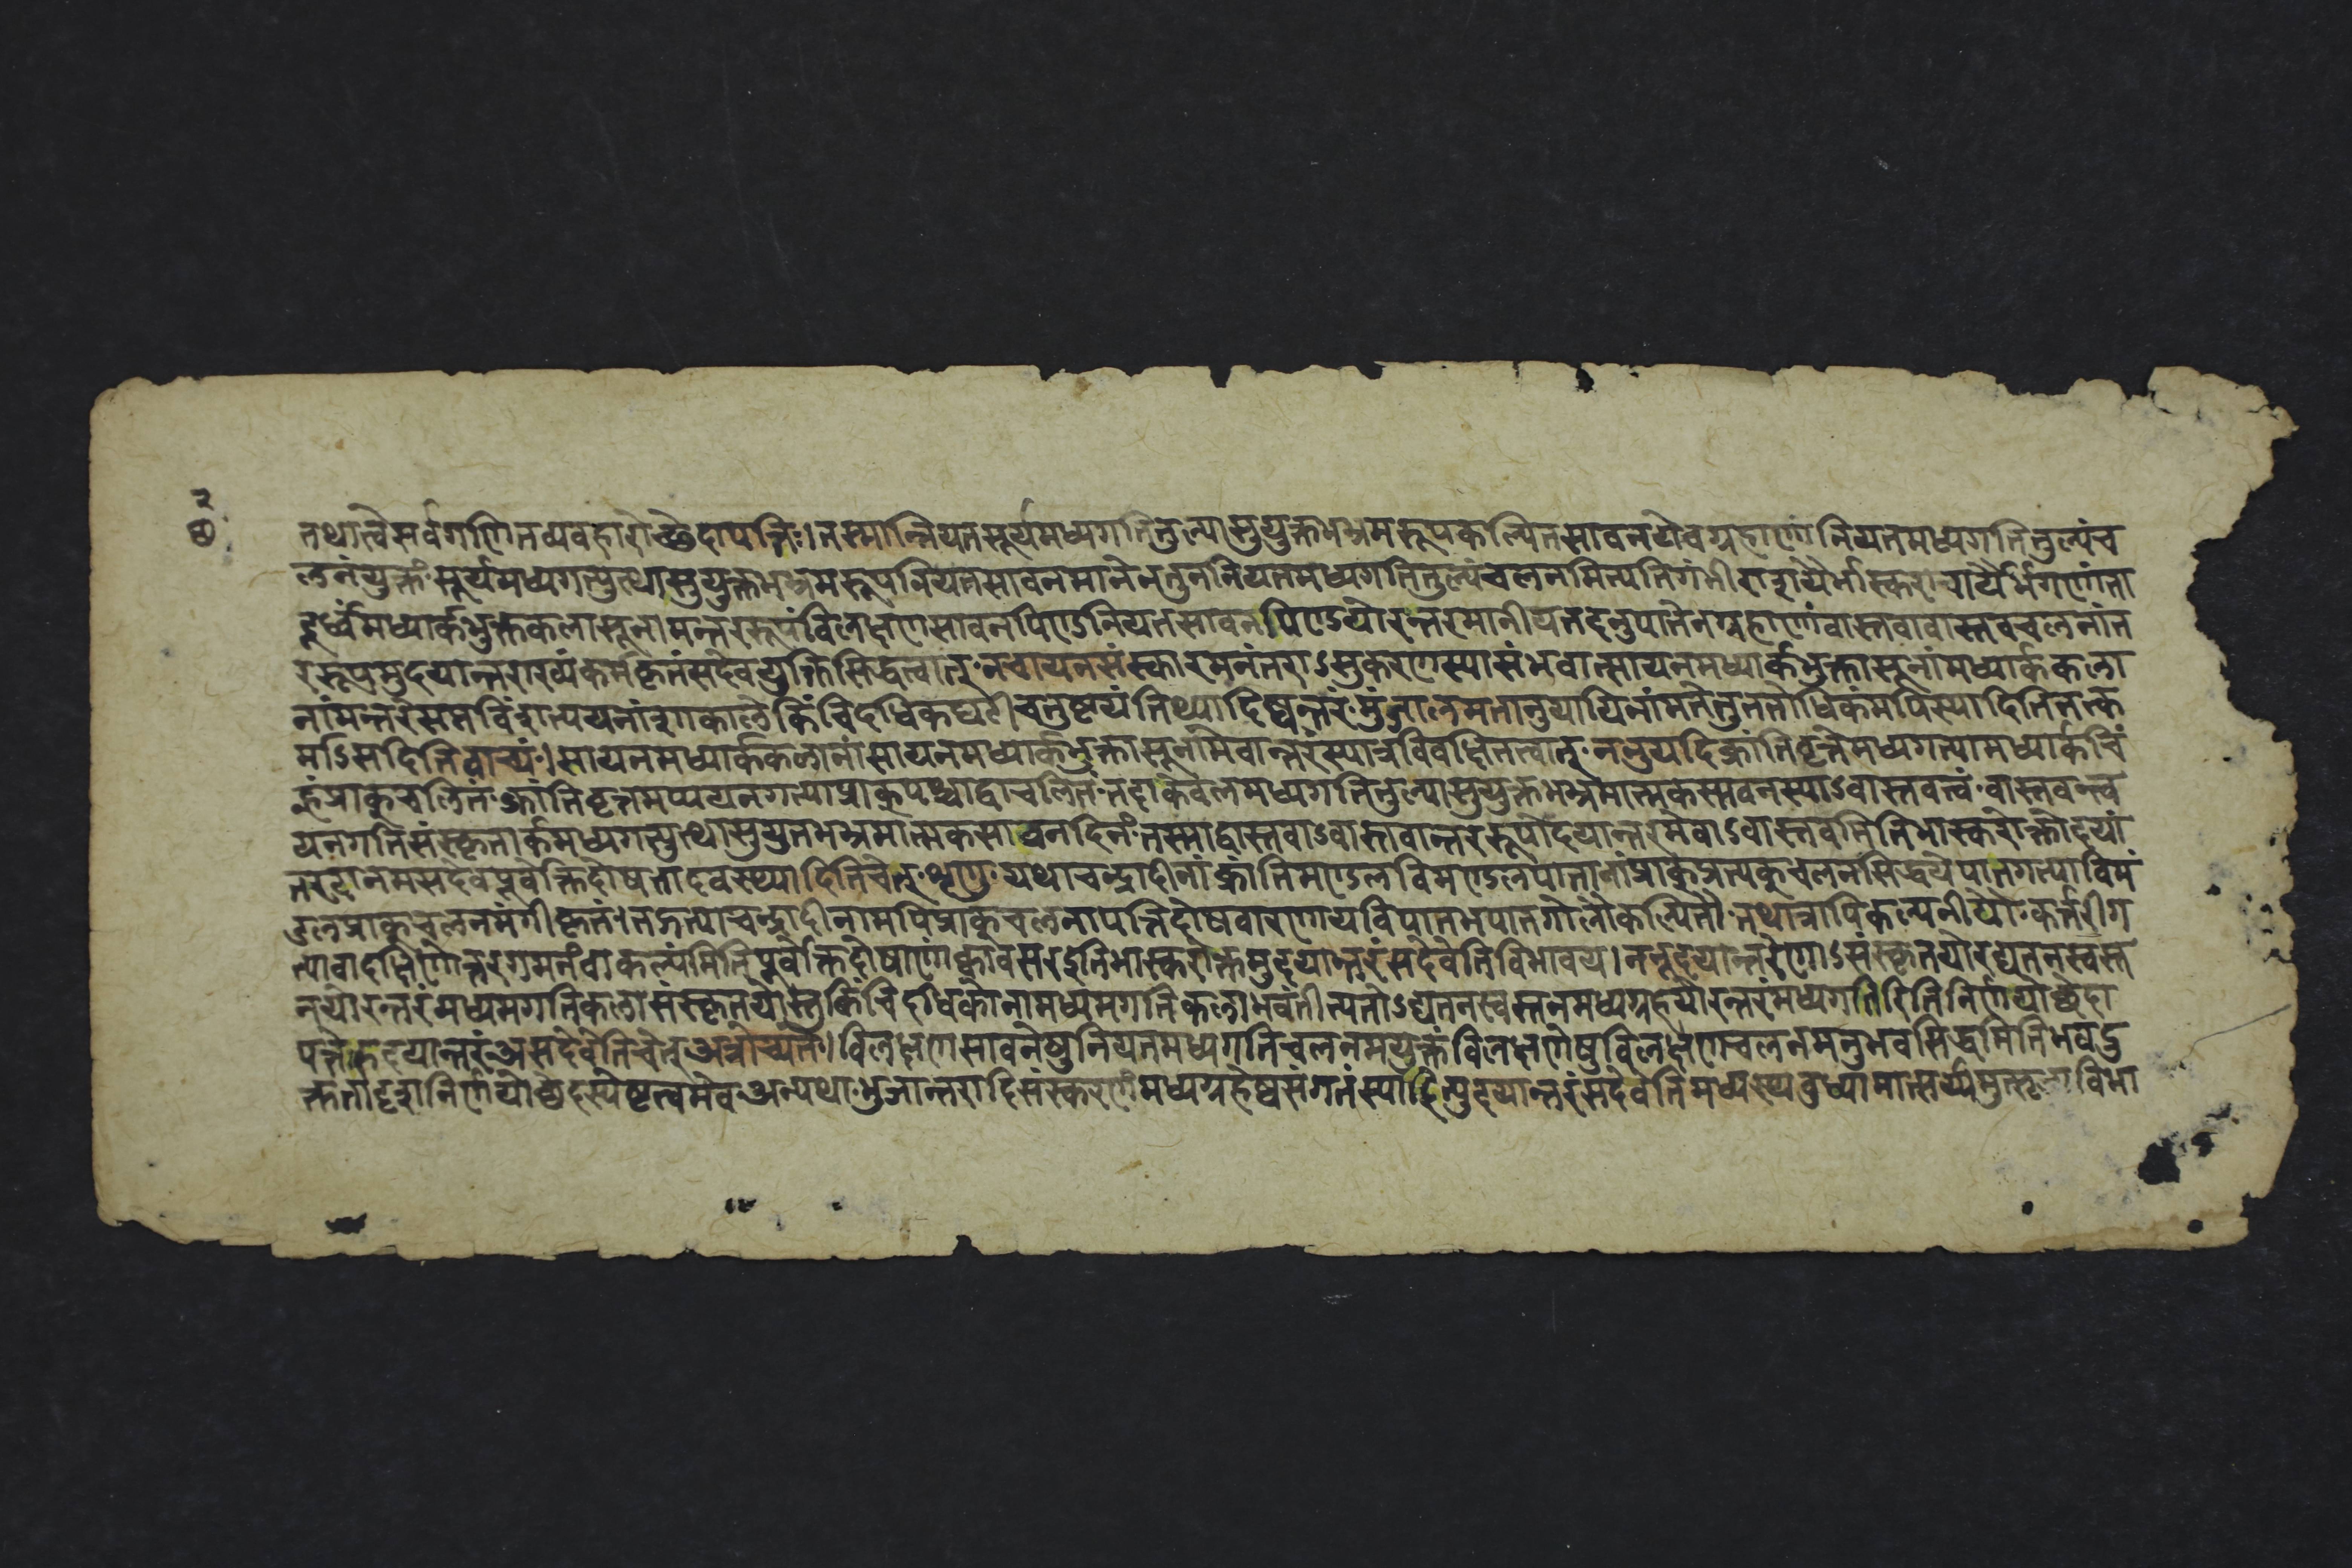 २
तथात्वेसर्वगणितव्यवहारोच्छेदापत्तिः।तस्मान्नियतसूर्यमध्यगतितुल्यासुयुक्तभभ्रमरूपकल्पितसावनयेवग्रहाणांनियतमध्यगतितुल्यंच
लनंयुक्तंसूर्यमध्यगत्युत्थासुयुक्तभभ्रमरूपनियतसावनमानेनतुननियतमध्यगतितुल्यंचलनमित्यतिगंभीराशयैर्भास्कराचार्यैर्भगणांता
दूर्ध्वंमध्यार्कभुक्तकलासूनामन्तररूपंविलक्षणसावनपिण्डनियतसावनपिण्डयोरन्तरमानीयतदनुपातेनग्रहाणांवास्तवावास्तवचलनांत
ररूपमुदयान्तराख्यंकर्मकृतंसदेवयुक्तिसिद्धत्वात्नचायनसंस्कारमनंतराऽसुकरणस्यासंभवात्सायनमध्यार्कभुक्तासूनांमध्यार्ककला
नांमन्तरेसप्तविंशत्ययनांशकालेकिंचिदधिकघटीचतुष्टयंतिथ्यादिष्वन्तरंमुंजालमतानुयायिनांमतेतुततोधिकंमपिस्यादितितत्क
र्माऽसदितिवाच्यं।सायनमध्यार्ककलानांसायनमध्यार्कभुक्तासूनांमेवान्तरस्यात्रविवक्षितत्वात्ननुयदिक्रांतिवृत्तेमध्यगत्यामध्यार्कचिं
ह्नंप्राक्चलितंक्रांतिवृत्तमप्ययनगत्याप्राक्पश्चाद्वाचलितंतदाकेवलमध्यगतितुल्यासुयुक्तभभ्रमात्मकसावनस्याऽवास्तवत्वंवास्तवन्त्व
यनगतिसंस्कृतार्कमध्यगत्युत्थासुयुतभभ्रमात्मकसावनदिनंतस्माद्वास्तवाऽवास्तवान्तररूपोदयान्तरमेवाऽवास्तवमितिभास्करोक्तोदयां
तरदानमसदेवपूर्वोक्तिदोषतादवस्थ्यादितिचेत्शृणुयथाचन्द्रादीनांक्रांतिमण्डलविमण्डलपातानांप्राक्प्रत्यक्चलनसिद्धयेपातगत्याविमं
डलप्राक्चलनमंगीकृतं।तद्गत्याचन्द्रादीनामपिप्राक्चलनापत्तिदोषवारणायविपातभपातगोलौकल्पितौतथात्रापिकल्पनीयौकर्त्तरीग
त्यावादक्षिणोत्तरगमनंवाकल्प्यमितिपूर्वोक्तिदोषाणांक्वावसरइतिभास्करोक्तमुदयान्तरंसदेवेतिविभावय।ननूदयान्तरेणाऽसंस्कृतयोरद्यतनस्वस्त
नयोरन्तरंमध्यमगतिकलासंस्कृतयोस्तुकिंचिदधिकोनामध्यमगतिकलाभवंतीत्यतोऽद्यतनस्वस्तनमध्यग्रहयोरन्तरंमध्यगतिरितिनिर्णयोच्छेदा
पत्तेरुदयान्तरंअसदेवेतिचेत्अत्रोच्यते।विलक्षणसावनेषुनियतमध्यगतिचलनमयुक्तंविलक्षणेषुविलक्षणचलनमनुभवसिद्धमितिभवदु
क्ततादृशनिर्णयोच्छेदस्येष्टत्वमेवअन्यथाभुजान्तरादिसंस्कारणंमध्यग्रहेष्वसंगतंस्यादित्युदयान्तरंसदेवेतिमध्यस्थबुध्यामात्सर्यमुत्सृज्यविभा